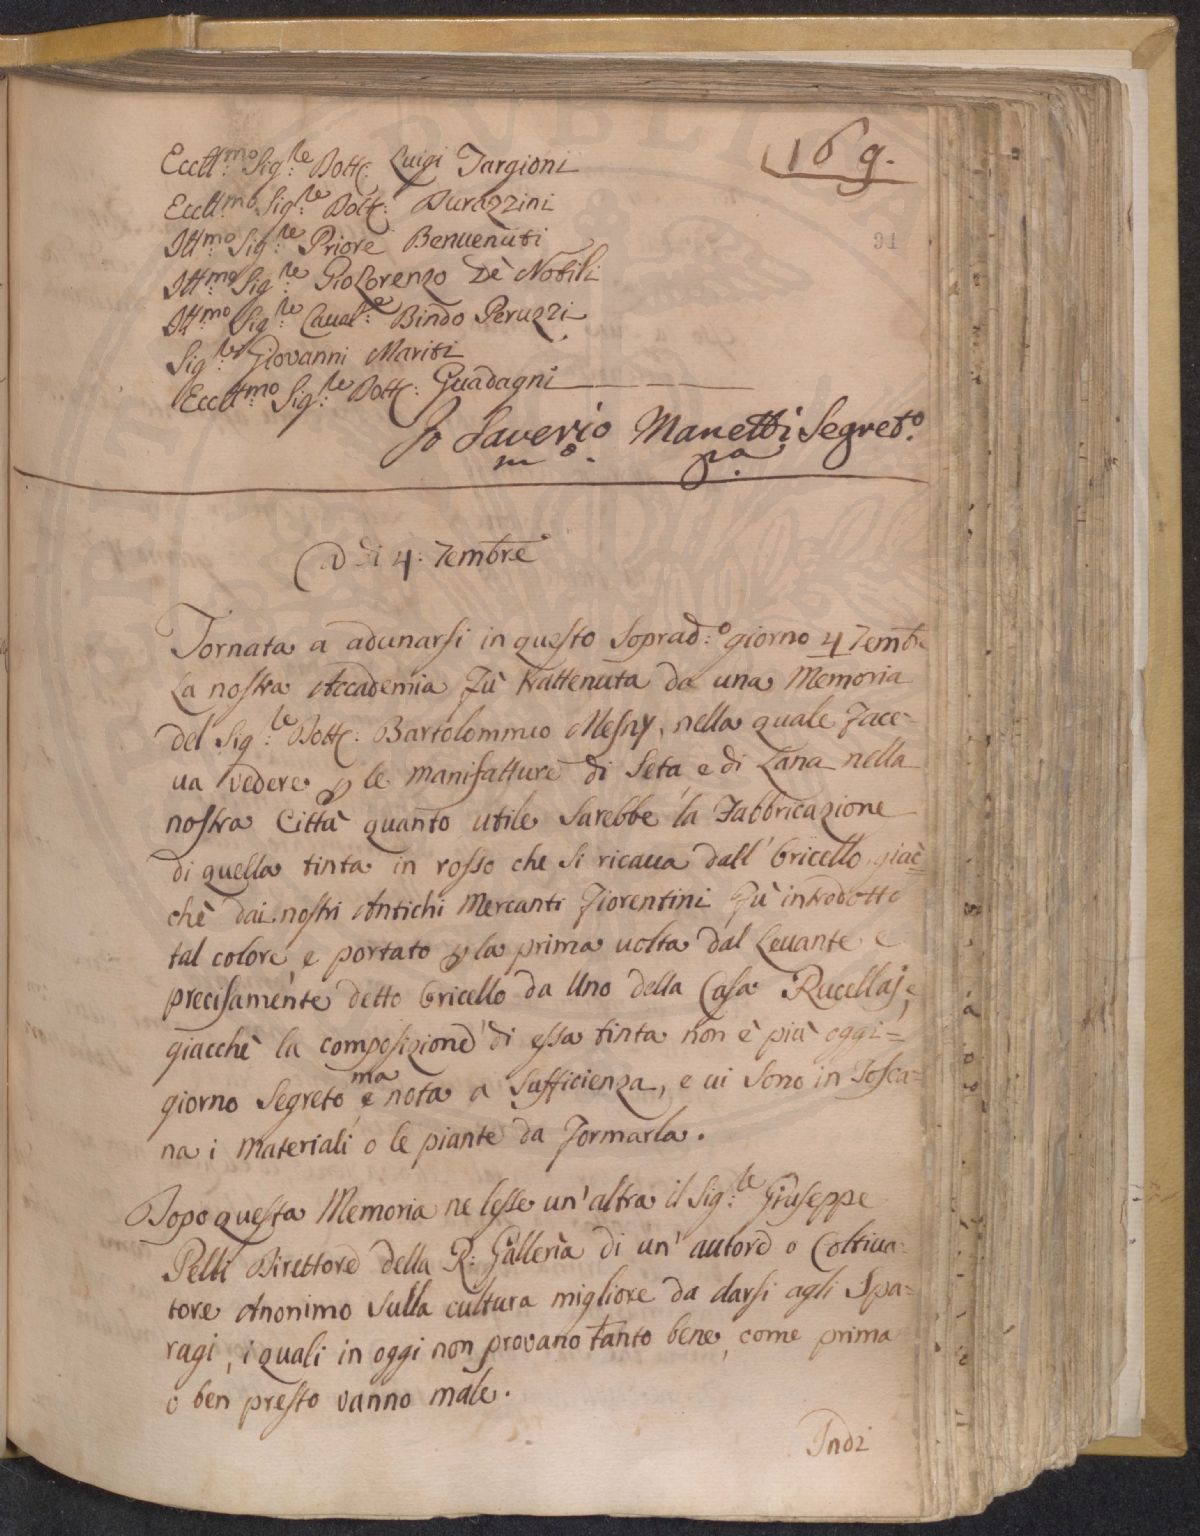 169.
91
Eccll.mo Sig.re Dott: Luigi Targioni
Eccll.mo Sig.re Dott: Durazzini
Ill.mo Sig.re Priore Benvenuti
Ill.mo Sig.re Gio Lorenzo Dè Nobili
Ill.mo Sig.re Caval.e Bindo Peruzzi
Sig.re Giovanni Mariti
Eccll.mo Sig.re Dott: Guadagni
Io Saverio Manetti Segret.o
m.o pa.
Adì 4: 7embre
Tornata a adunarsi in questo soprad:o giorno 4 7embre
la nostra Accademia fù trattenuta da una Memoria
del Sig:re Dott: Bartolommeo Mesny, nella quale face=
ua vedere p le manifatture di Seta e di Lana nella
nostra Città quanto utile sarebbe la Fabbricazione
di quella tinta in rosso che si ricaua dall'Oricello, giac=
chè dai nostri Antichi Mercanti Fiorentini fù introdotto
tal colore, e portato p la prima uolta dal Leuante e
precisamente detto Oricello da Uno della Casa Rucellaj, e
giacchè la composizione di essa tinta non è più oggi=
giorno Segreto ma è nota a sufficienza, e ui sono in Tosca=
na i materiali o le piante da formarla.
Dopo questa Memoria ne lesse un'altra il Sig:re Giuseppe
Pelli Direttore della R: Gallerìa di un'autore o Coltiua=
tore Anonimo sulla cultura migliore da darsi agli Spa=
ragi, i quali in oggi non provano tanto bene, come prima
o ben presto vanno male.
Indi